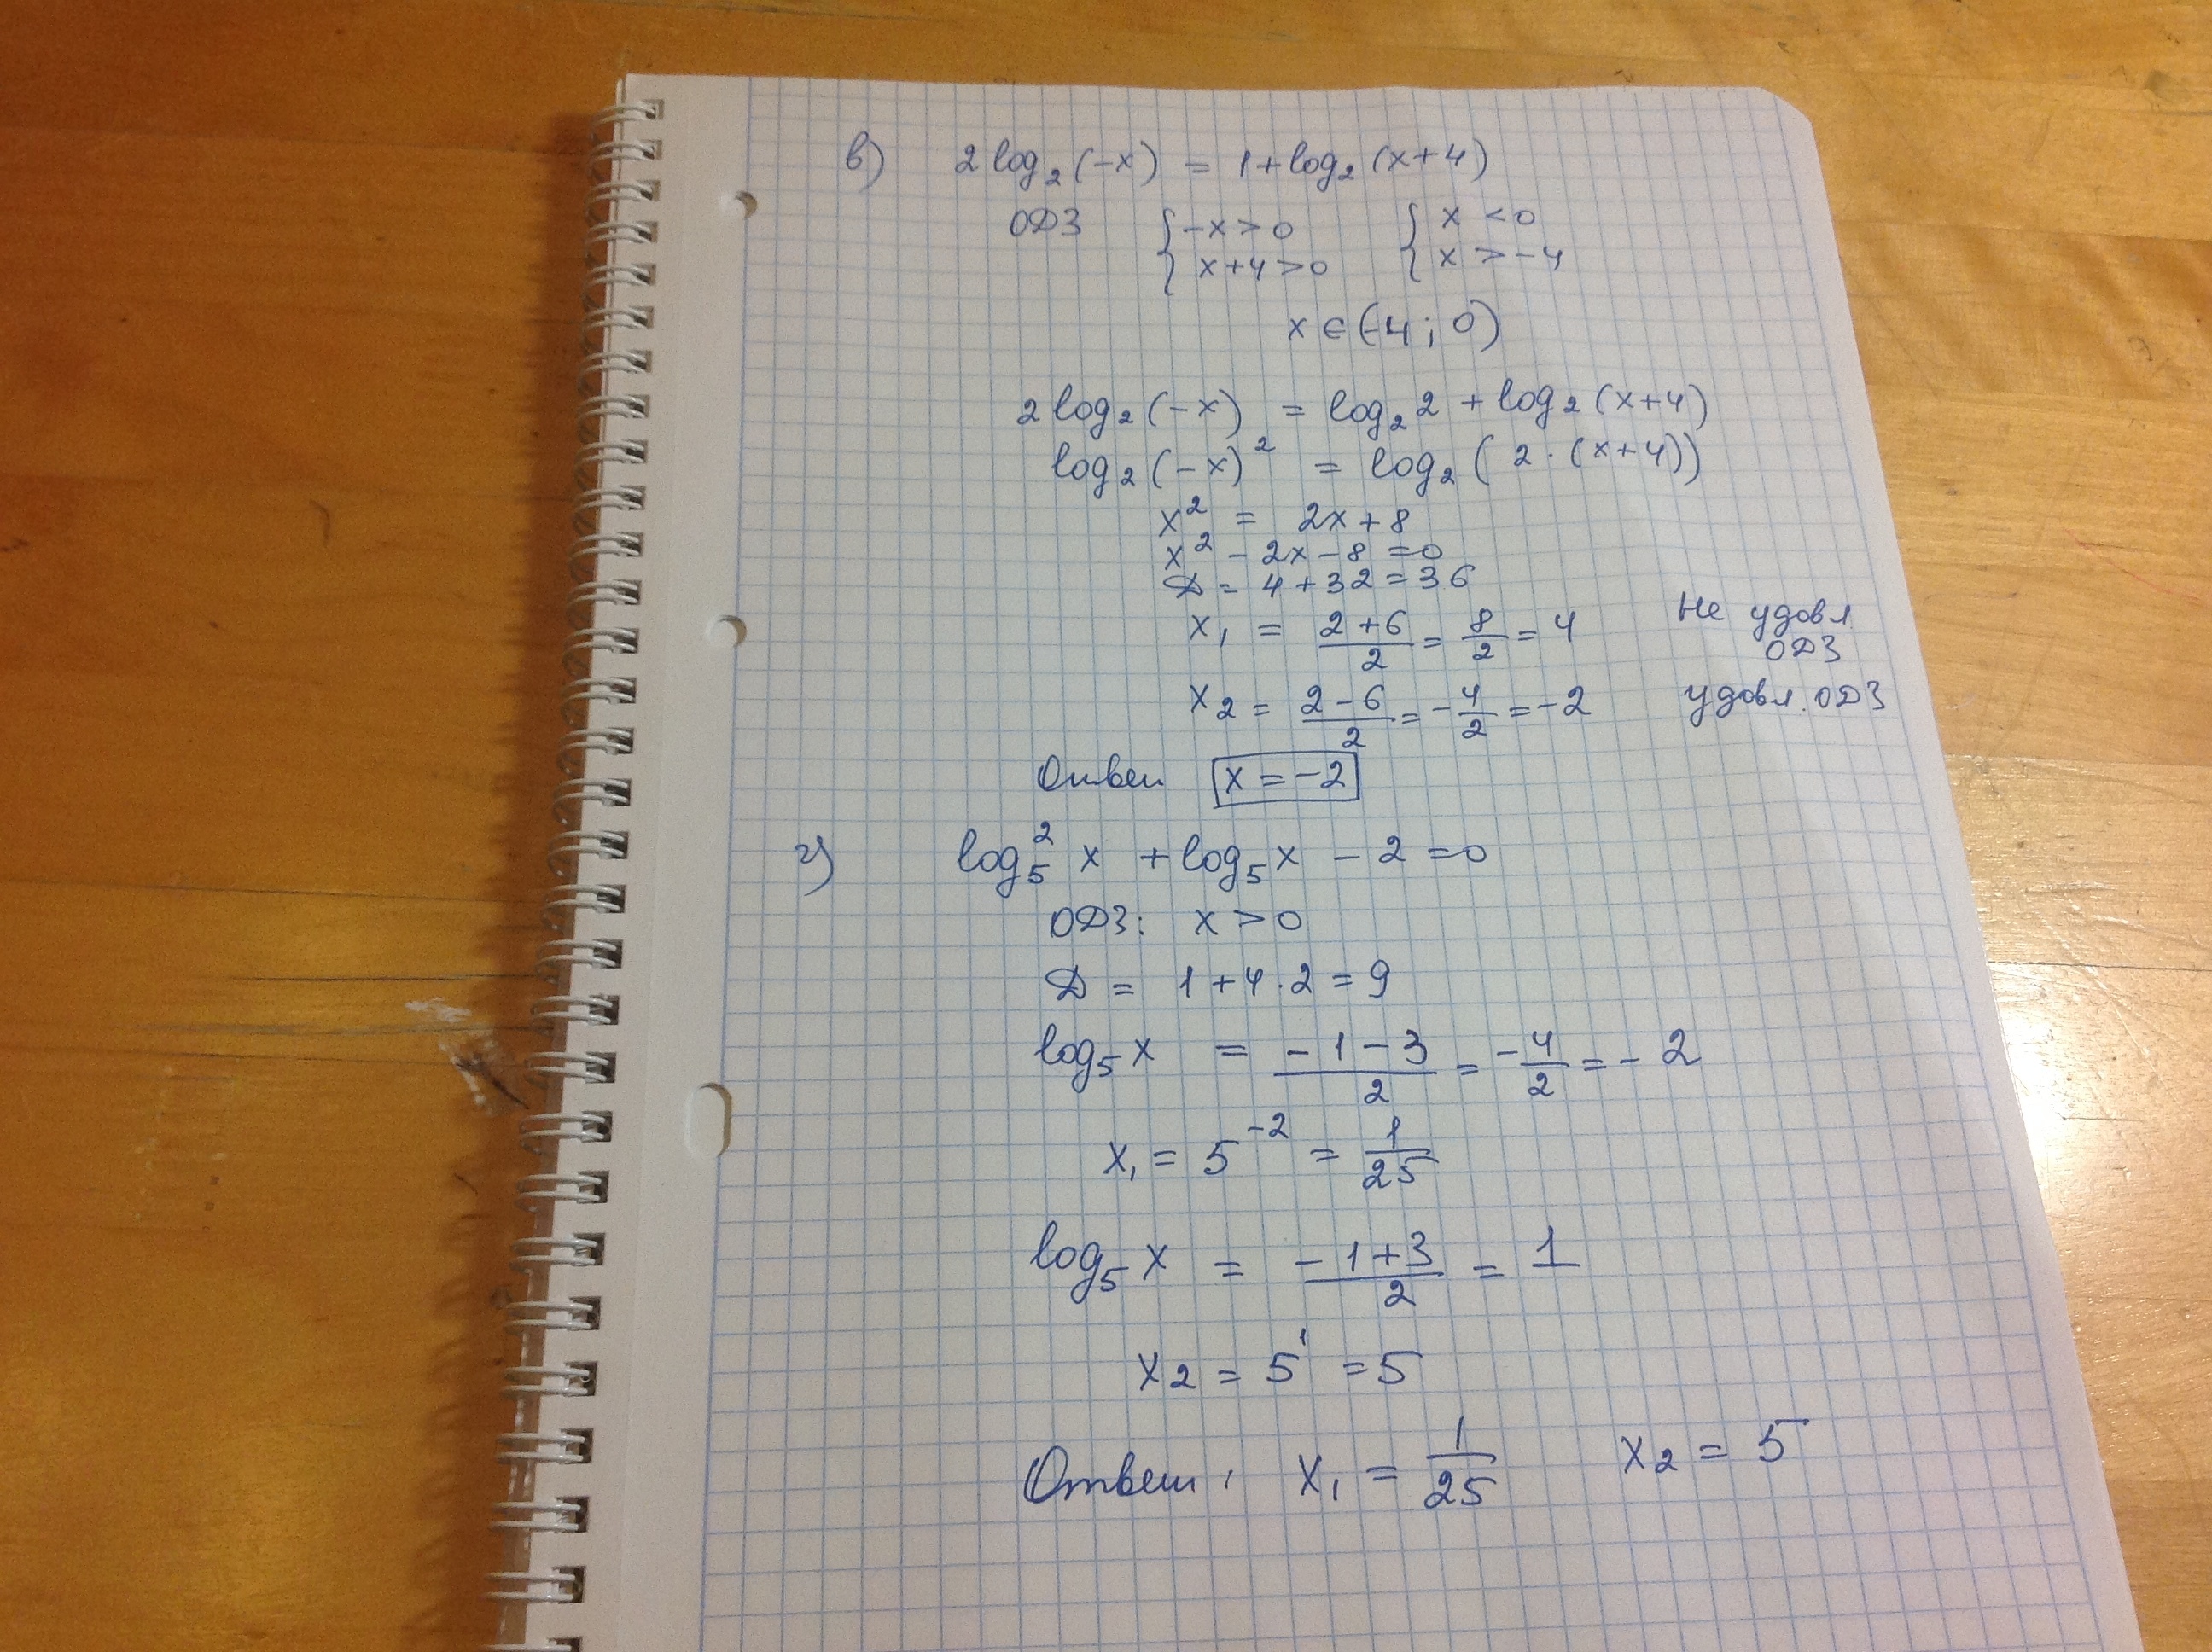 в) 2 log₂ (-x) = 1 + log₂ (x+4)
ОДЗ { -x > 0 { x < 0
{ x+4 > 0 { x > -4
x ∈ (-4; 0)
2 log₂ (-x) = log₂ 2 + log₂ (x+4)
log₂ (-x)² = log₂ (2·(x+4))
x² = 2x + 8
x² - 2x - 8 = 0
Д = 4 + 32 = 36
x₁ = (2+6)/2 = 8/2 = 4 Не удовл.
ОДЗ
x₂ = (2-6)/2 = -4/2 = -2 удовл. ОДЗ
Ответ x = -2
г) log₅² x + log₅ x - 2 = 0
ОДЗ: x > 0
Д = 1 + 4·2 = 9
log₅ x = (-1-3)/2 = -4/2 = -2
x₁ = 5⁻² = 1/25
log₅ x = (-1+3)/2 = 1
x₂ = 5¹ = 5
Ответ: x₁ = 1/25 x₂ = 5